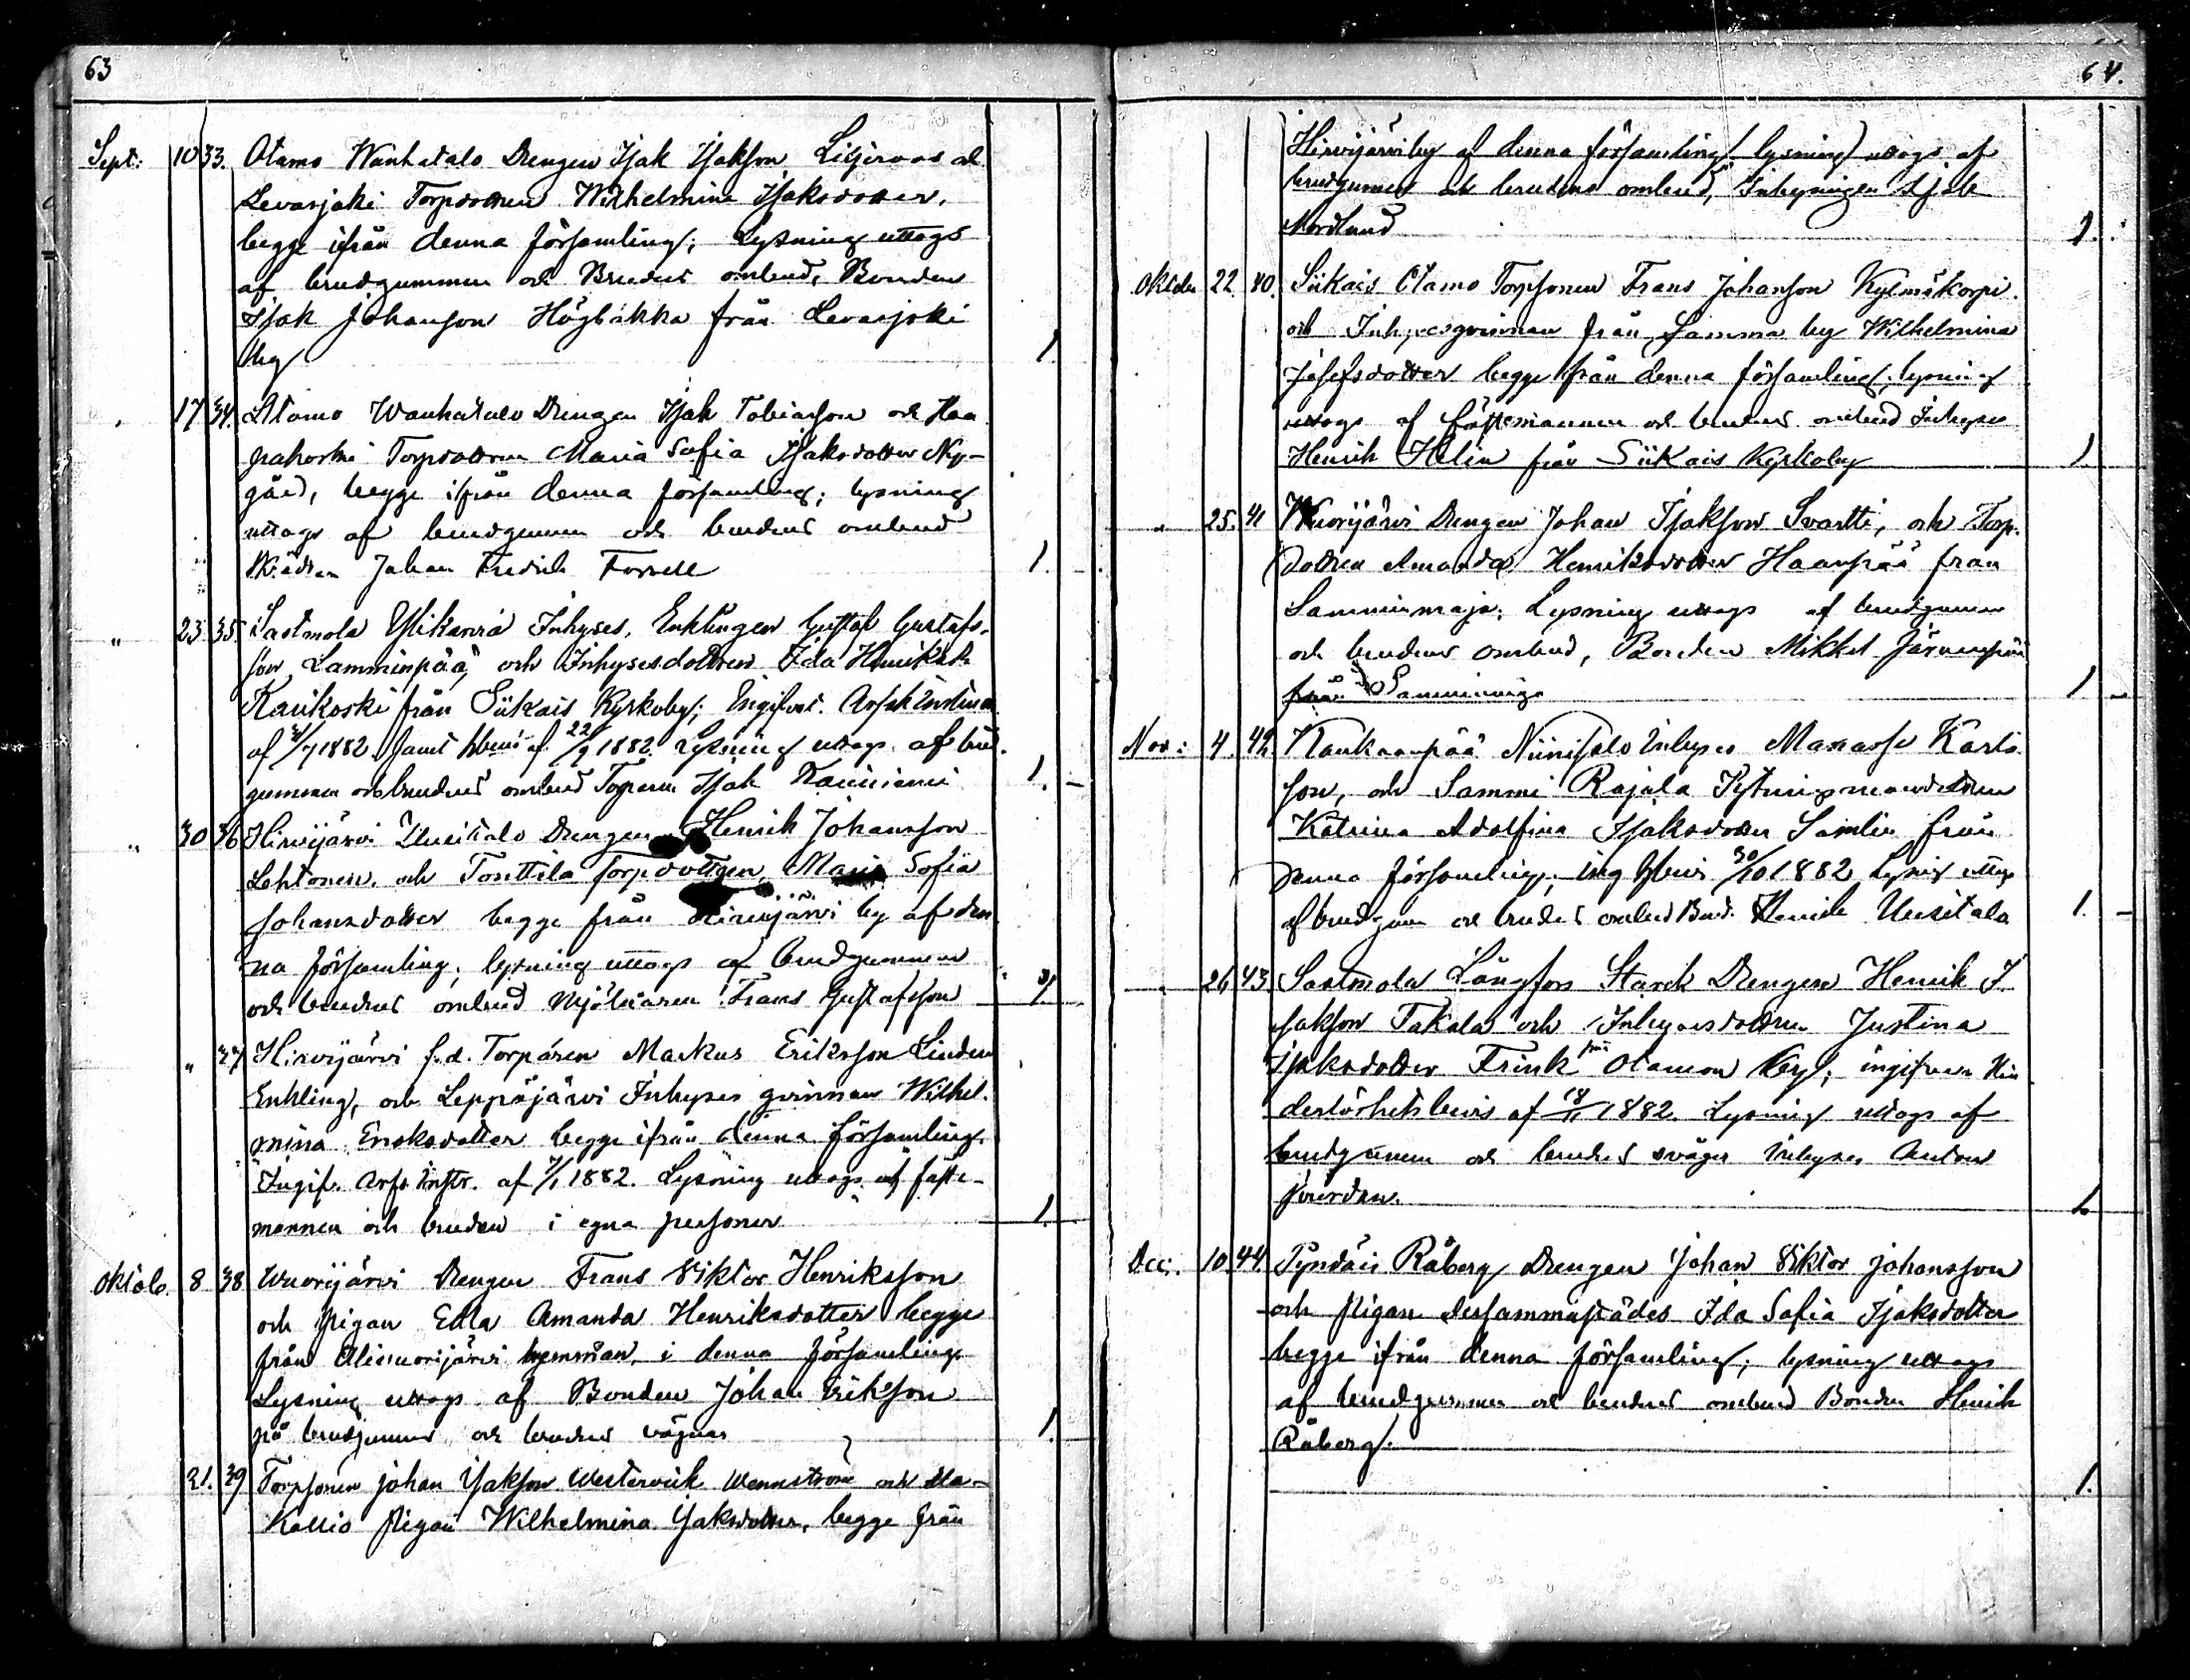 63
Sept: 10 33. Otamo Wanhatalo Drengen Isak Isaksson och
Levasjoki Torpdottren Wilhelmina Isaksdotter,
begge ifrån denna församling; Lysning uttogs
af brudgummen och Brudens ombud, Bonden
Isak Johansson Högbakka från Levasjoki
by 1
17 34. Otamo Wanhatalo Drengen Isak Tobiasson och Haa
pakoski Torpdottren Maria Sofia Isaksdotter Ny-
gård, begge ifrån denna församling; lysning
uttogs af brudgummen och brudens ombud
Johan Fredrik Forsell 1.
" 23 35. Sastmola Ylikarvia Inhyses, Enklingen Gustaf Gustafs-
son Lamminpää, och Inhysesdottren Ida Henriksdr
Kaukoski från Siikais Kyrkoby; Ingifvet.
af /7 1882 samt af 22/9 1882. Lysning uttogs af brud-
gummen och brudens ombud Torparen Isak 1.
" 30 36 Hirvijärvi Uusitalo Drengen Henrik Johansson
Lehtonen, och Tonttila Torpdottren, Maria Sofia
Johansdotter begge från Hirvijärvi by af den
na församling; lysning uttogs af Brudgummen
och brudens ombud Mjölnaren Frans Gustafsson 1
" 37 Hirvijärvi f.d. Torparen Markus Eriksson Linden
Enkling, och Leppäjärvi Inhyses qvinnan Wilhel-
mina Eriksdotter begge ifrån denna församling.
Ingif. Arfs Instr. af 1882. Lysning uttogs af fäste-
mannen och bruden i egna personer 1.
Oktob. 8 38 Wuorijärvi Drengen Frans Viktor Henriksson
och pigan Edla Amanda Henriksdotter begge
från Aliwuorijärvi hemman, i denna församling
Lysning uttogs af Bonden Johan Eriksson
på brudgummens och brudens vägnar 1.
21. 39 Torpsonen Johan Isaksson Westervik Wennström och
Kallio Pigan Wilhelmina Isaksdotter, begge från
64.
Hirvijärvi by af denna församling; lysning uttogs af
brudgummen och brudens ombud, Inhysingen Isak
Nordlund 1.
Oktober 22. 40. Siikais Otamo Torpsonen Frans Johansson Kylmäkorpi.
och Inhysesqvinnan från samma by Wilhelmina
Josefsdotter begge från denna församling, lysning
uttogs af fästemannen och brudens ombud Inhyses
Henrik Helin från Siikais Kyrkoby 1
" 25. 41 Wuorijärvi Drengen Johan Isaksson Svartti, och Torp-
dottren Amanda Henriksdotter Haanpää från
Samminmaja. Lysning uttogs af brudgummen
och brudens ombud, Bonden Mikkel Järvenpää
från Samminmaja 1
Nov: 4. 42. Kankaanpää Niinisalo Inhyses Manasse Karls
son, och Sammi Rajala
Katrina Adolfina Isaksdotter Samlin från
denna församling; 30/10 1882 Lysning uttogs
af brudgum och brudens ombud Bond. Henrik Uusitalo 1.
" 26 43. Sastmola Långfors Starck Drengen Henrik I-
saksson Takala och Inhysesdottren Justina
Isaksdotter Frisk från Otamon by; ingifven Hin
derlöshets bevis af 18/11 1882. Lysning uttogs af
brudgummen och brudens svåger Inhyses Anton
1.
Dec: 10. 44. Pyndäri Råberg Drengen Johan Viktor Johansson
och Pigan dersammastädes Ida Sofia Isaksdotter
begge ifrån denna församling; lysning uttogs
af brudgummen och brudens ombud Bonden Henrik
Råberg.
1.